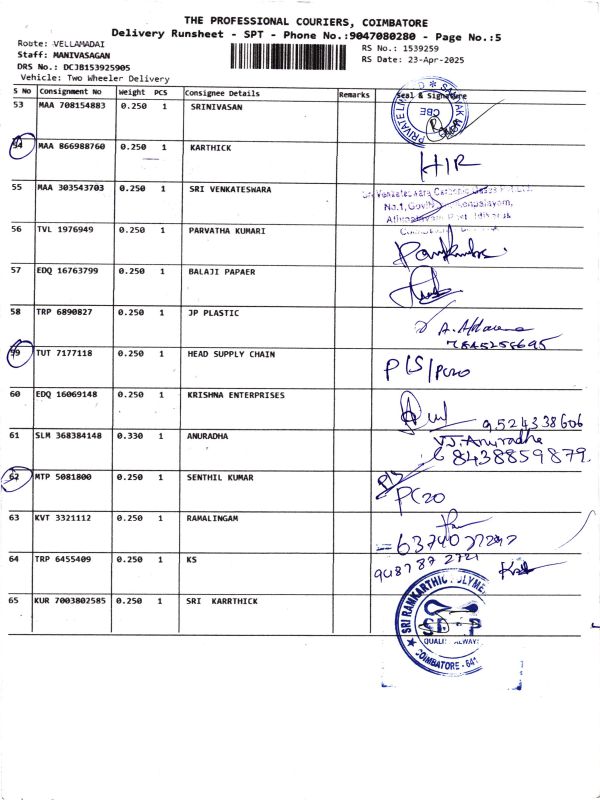 THE PROFESSIONAL COURIERS, COIMBATORE
Delivery Runsheet - SPT - Phone No.:9047080280 - Page No.:5
Route: VELLAMADAI
RS No.: 1539259
Staff: MANIVASAGAN
RS Date: 23-Apr-2025
DRS No.: DCJB153925905
Vehicle: Two Wheeler Delivery
S No Consignment No Weight PCS Consignee Details Remarks Seal & Signature
53 MAA 708154883 0.250 1 SRINIVASAN
PRIVATE CBE
54 MAA 866988760 0.250 1 KARTHICK
55 MAA 303543703 0.250 1 SRI VENKATESWARA
Sri Venkateswara Carbonic Gases Pvt Ltd
No.1,
56 TVL 1976949 0.250 1 PARVATHA KUMARI
57 EDQ 16763799 0.250 1 BALAJI PAPAER
58 TRP 6890827 0.250 1 JP PLASTIC
59 TUT 7177118 0.250 1 HEAD SUPPLY CHAIN
60 EDQ 16069148 0.250 1 KRISHNA ENTERPRISES
9524338606
61 SLM 368384148 0.330 1 ANURADHA
VJ. Anuradha
8438859879
62 MTP 5081800 0.250 1 SENTHIL KUMAR
63 KVT 3321112 0.250 1 RAMALINGAM
64 TRP 6455409 0.250 1 KS
65 KUR 7003802585 0.250 1 SRI KARRTHICK
SRI RAMKARTHIC POLYME
COIMBATORE - 641